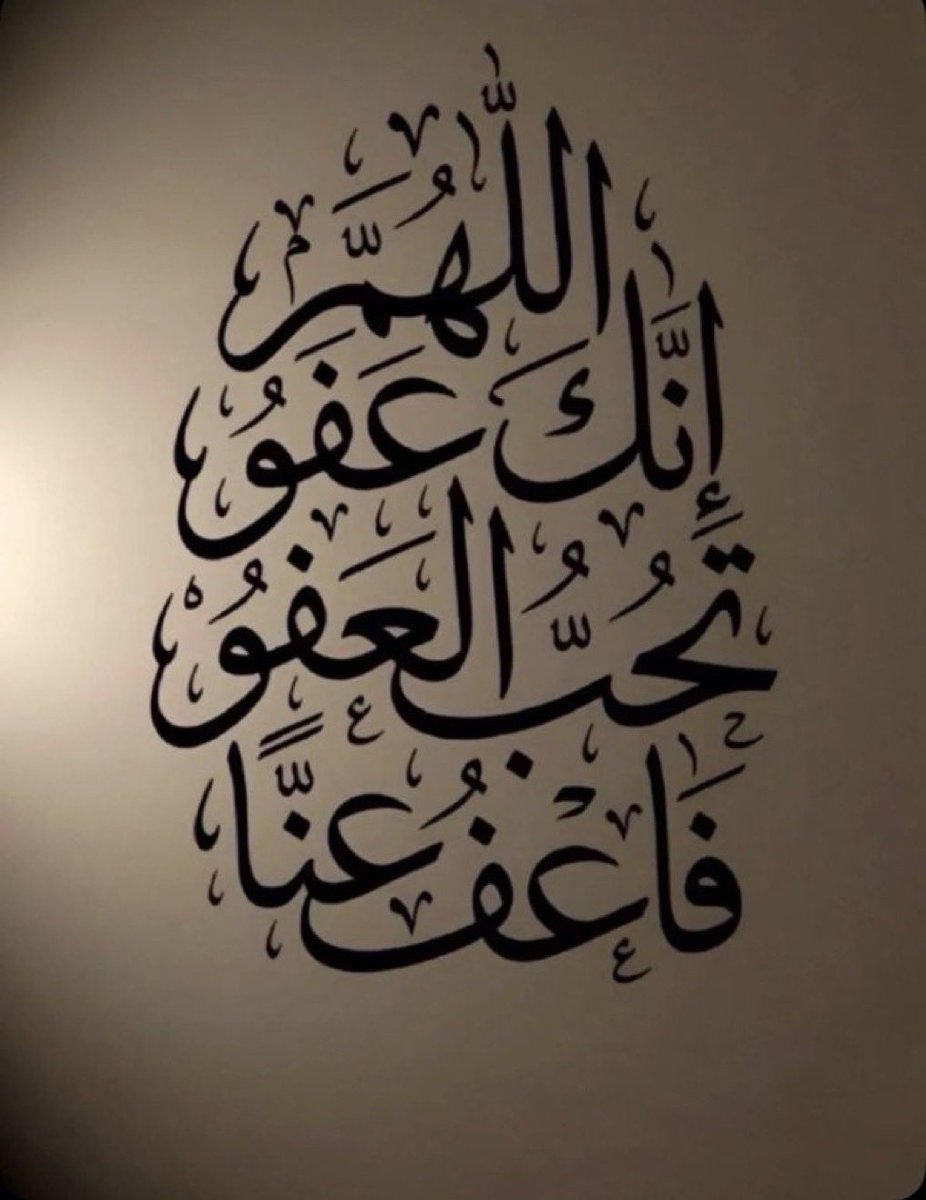 اللَّهُمَّ
إِنَّكَ عَفُوٌ
تُحِبُّ العَفْوَ
فَاعْفُ عَنَّا